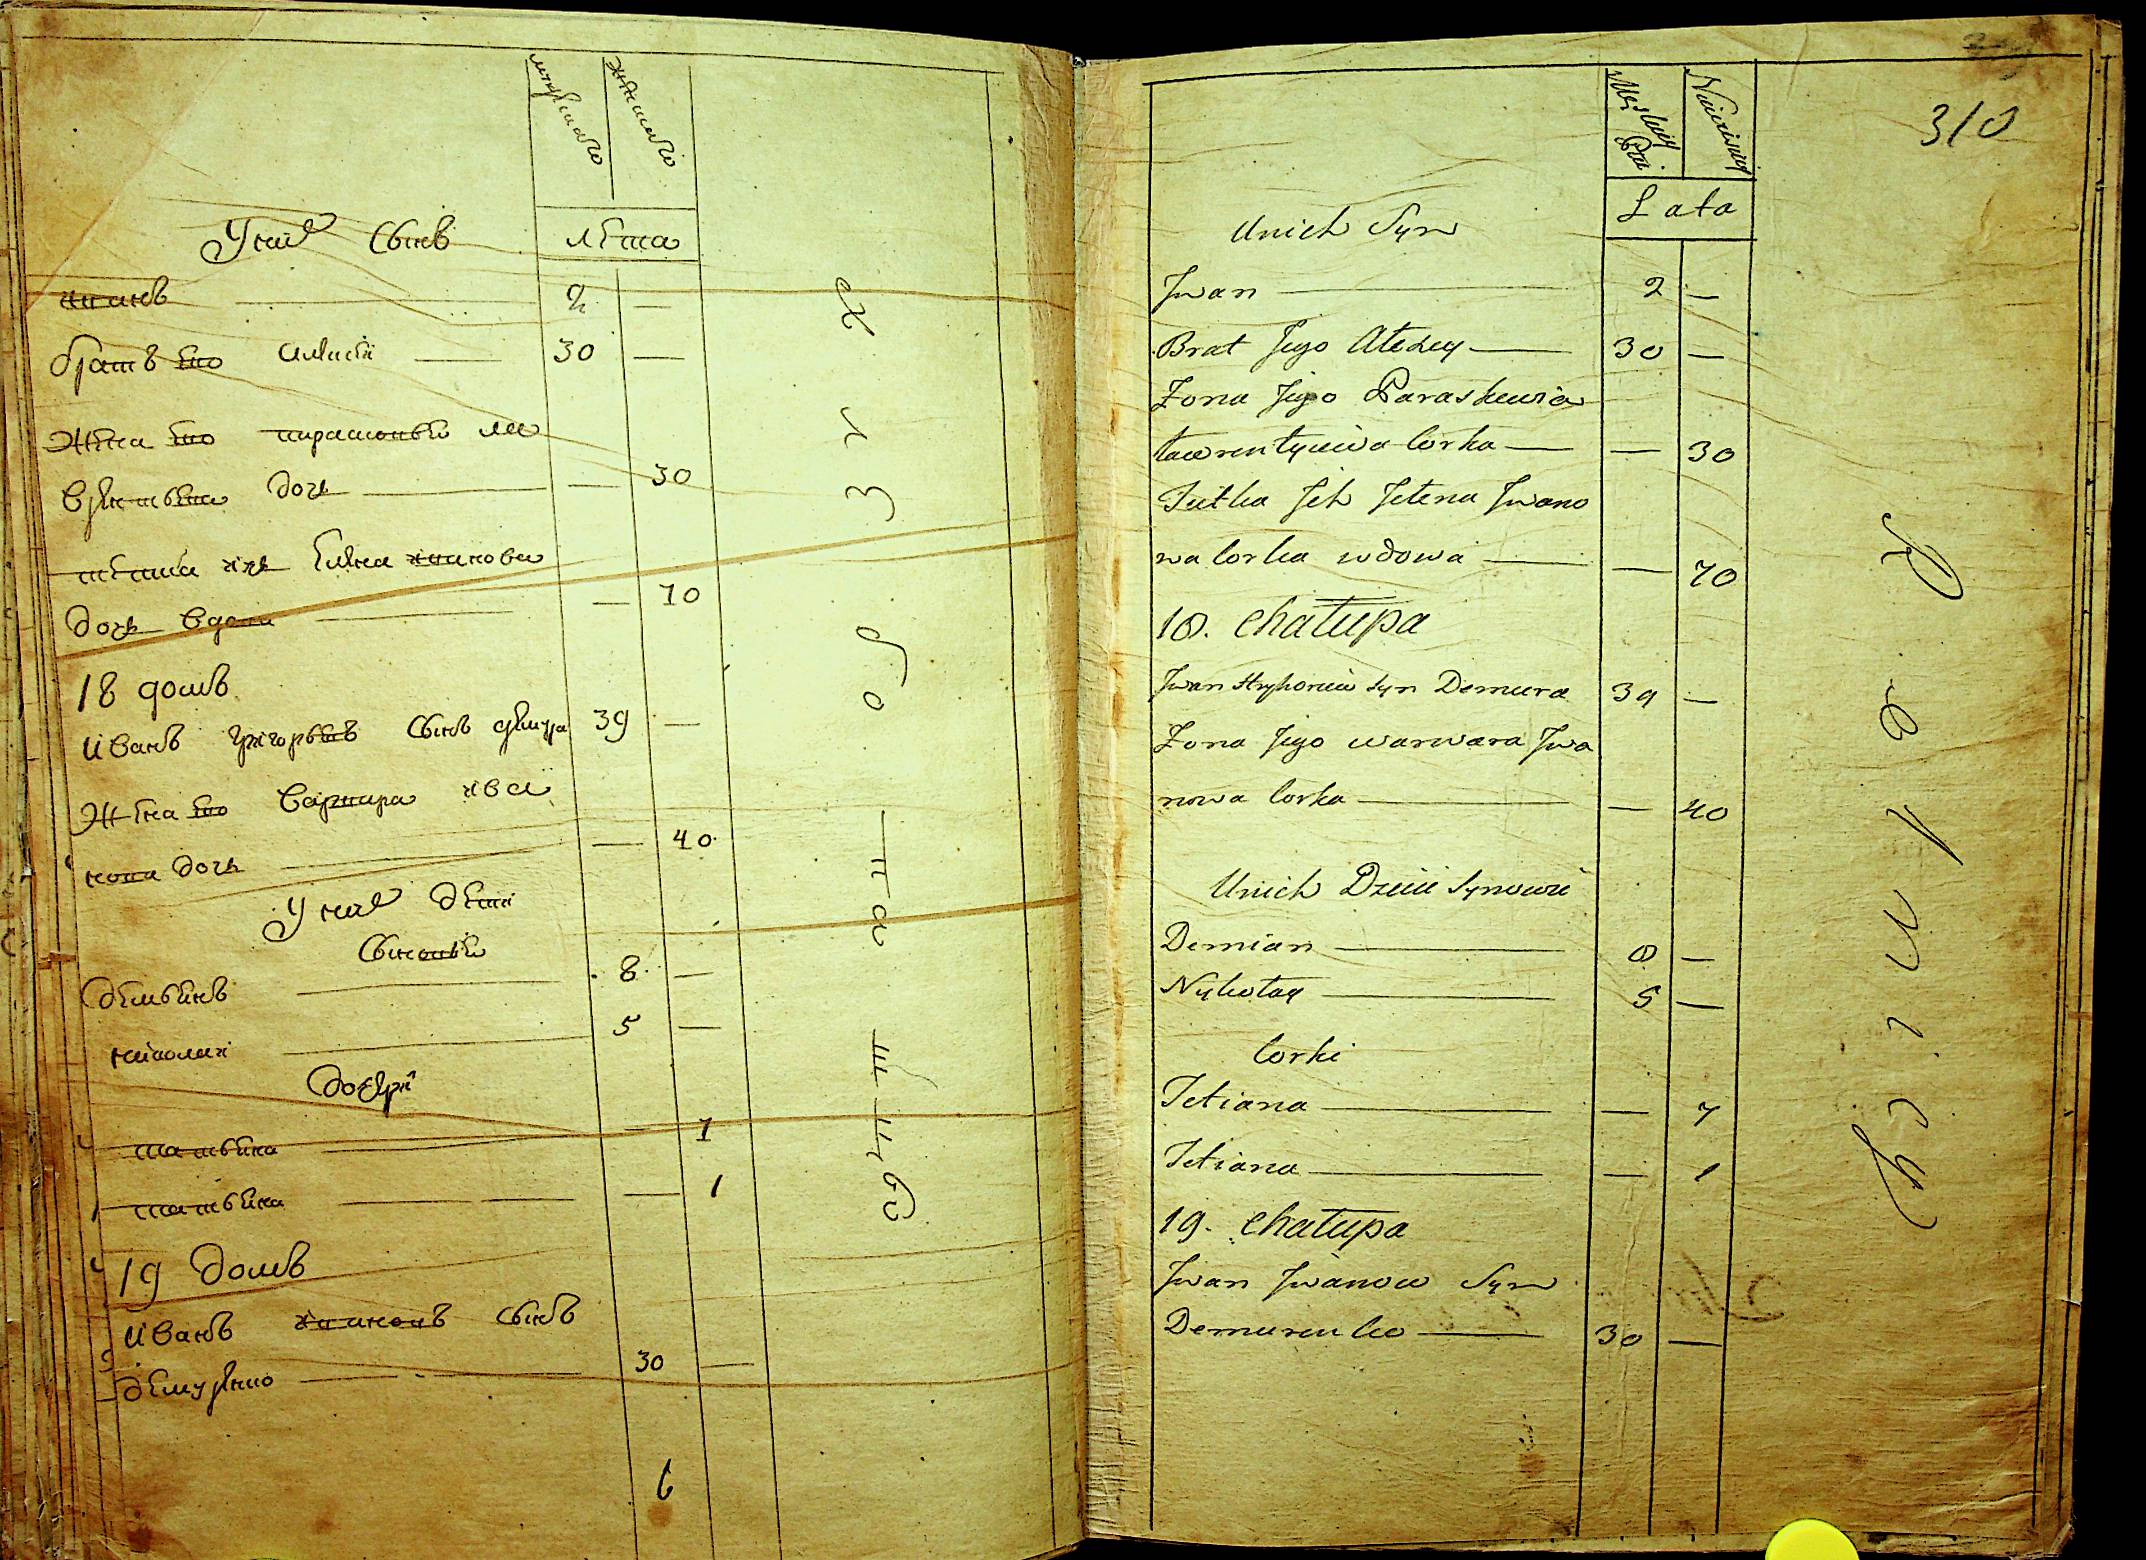 мужеска женска
лѣта
У них сынъ
иванъ 2 —
братъ его алексѣй 30 —
жена его парасковѣя ла
врентьева дочь — 30
тетка ихъ елена иванова
дочь вдова — 70
18 домъ
иванъ григорьевъ сынъ демура 39 —
жена его варвара ива
нова дочь — 40
У них дети
сыновѣя
демьянъ 8 —
николаи 5 —
дочери
татьяна — 7
татьяна — 1
19 домъ
иванъ ивановъ сынъ
демуренко 30 —
6
310
Męskiey Płci Niewieściey
Lata
Unich Syn
Jwan 2 —
Brat Jego Alexey 30 —
Żona Jego Paraskewia
Lawrentyiewa Corka — 30
Jetka Jch Jelena Jwano
wa Corka wdowa — 70
18. Chałupa
Jwan Hryhoriew syn Demura 39 —
Żona Jego warwara Jwa
nowa Corka — 40
Unich Dzieci Synowie
Demian 8 —
Nykołay 5 —
Corki
Tetiana — 7
Tetiana — 1
19. Chałupa
Jwan Jwanow Syn
Demurenko 30 —